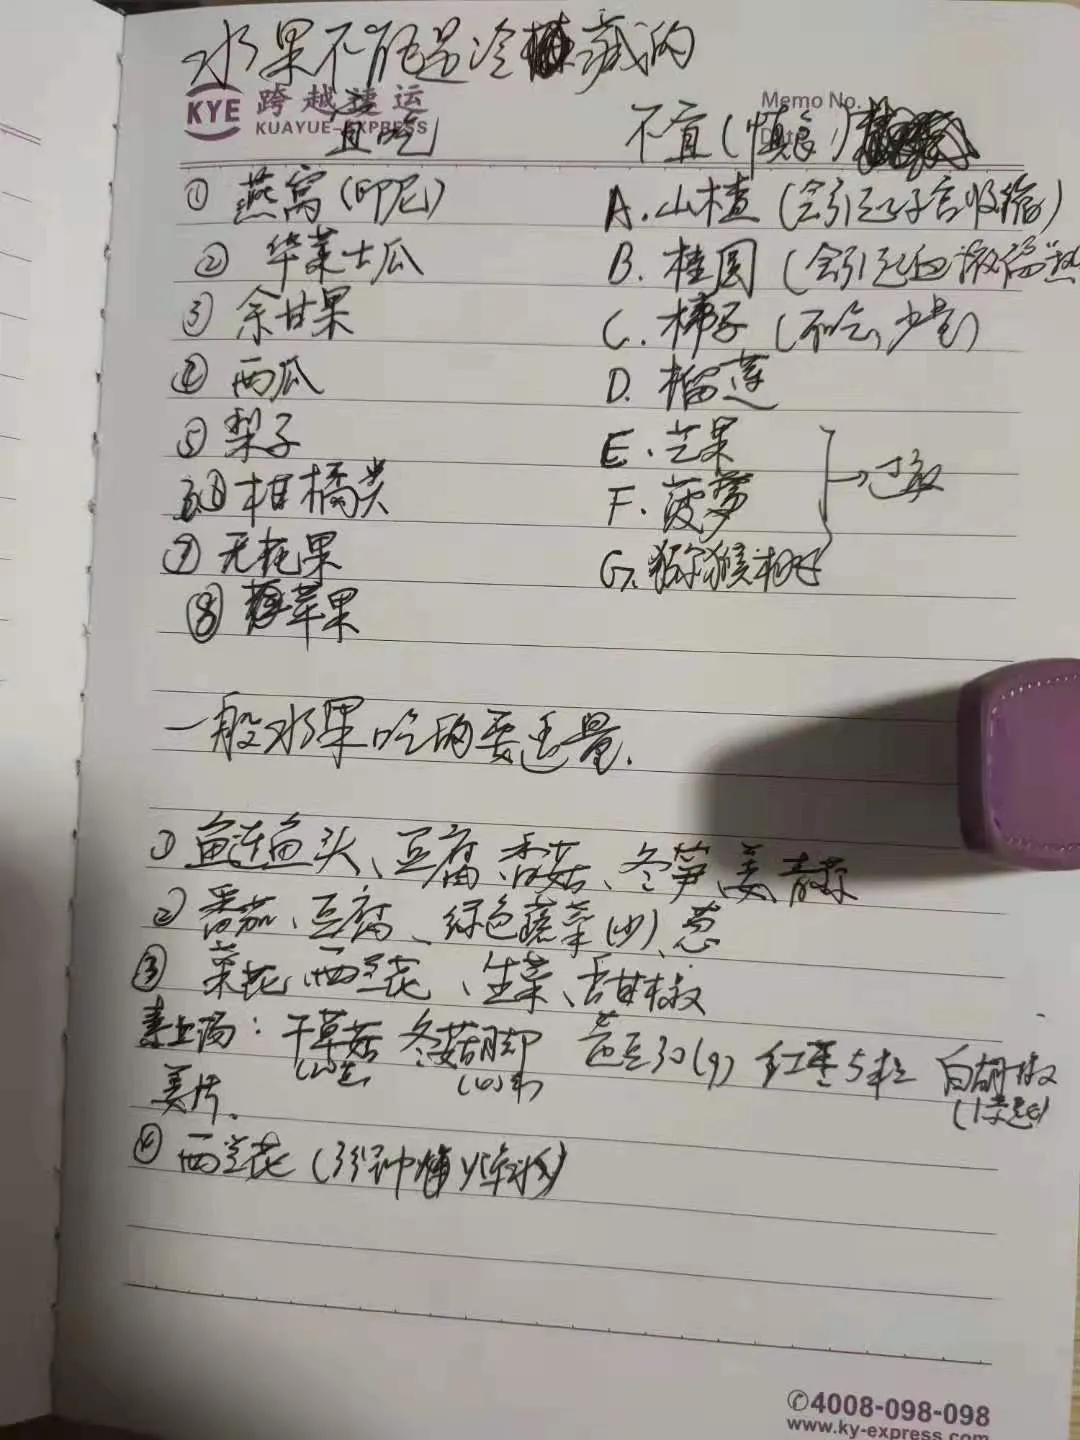 水果不能是冷藏的
KYE 跨越速运 Memo No.
KUAYUE-EXPRESS
宜吃 不宜(慎食)
① 燕窝(印尼) A.山楂(会引起子宫收缩)
② 华莱士瓜 B.桂圆(会引起血液偏热
③ 余甘果 C.柿子(不吃,少量)
④ 西瓜 D.榴莲
⑤ 梨子 E.芒果
柑橘类 F.菠萝 →过敏
⑦ 无花果 G.猕猴桃
⑧ 苹果
一般水果吃的要适量.
① 鱼连鱼头、豆腐、香菇、冬笋、姜、青蒜
② 番茄、豆腐、绿色蔬菜(少)、葱
③ 菜花、西兰花、生菜、甜椒
素上汤:干草菇 冬菇脚 30(g) 红枣5粒 白胡椒
姜片.
④ 西兰花(3分钟
✆4008-098-098
www.ky-express.com